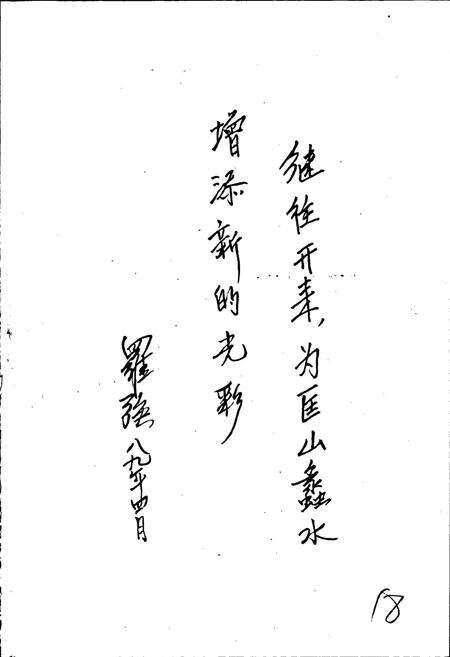 继往开来，为匡山蠡水
增添新的光彩
羅强
八九年四月
18